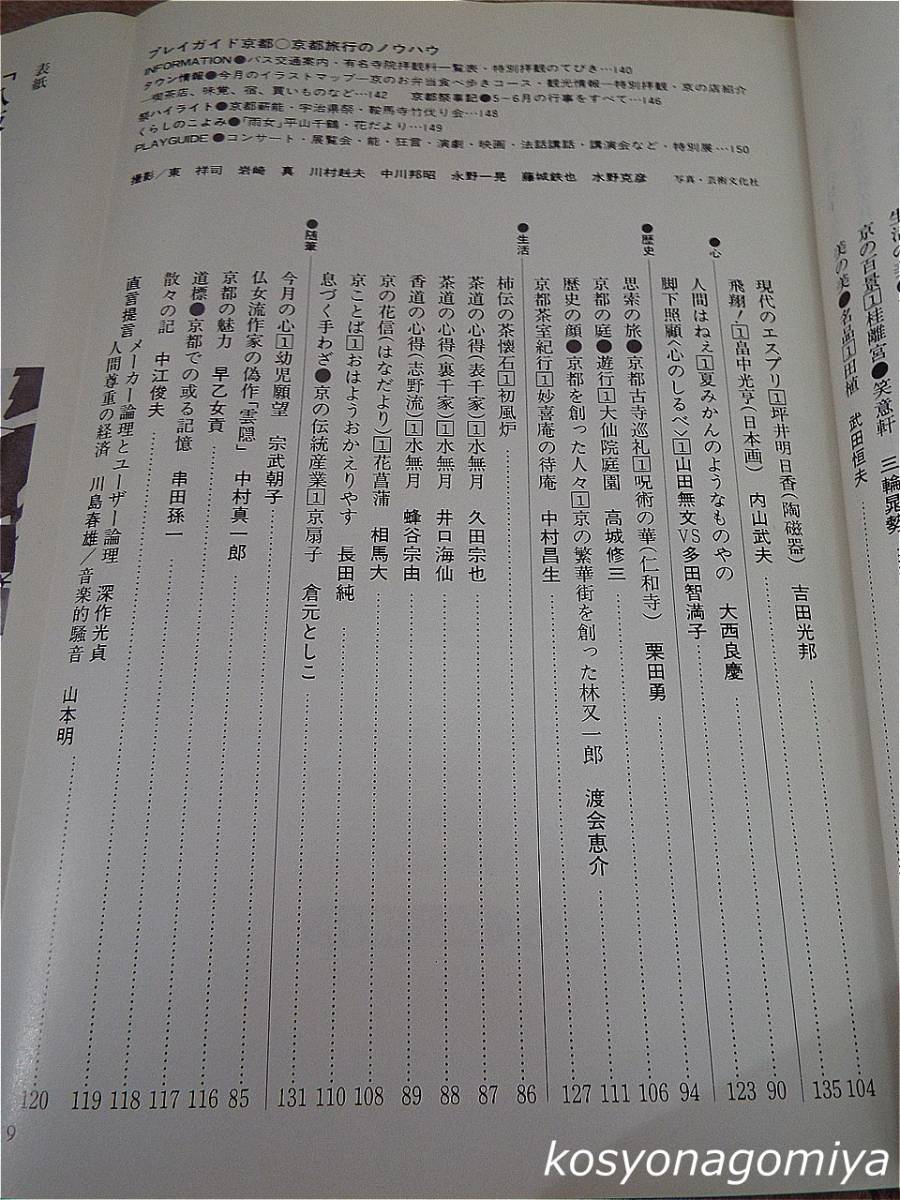 プレイガイド京都○京都旅行のノウハウ
INFORMATION●バス交通案内・有名寺院拝観料一覧表・特別拝観のてびき…140
タウン情報●今月のイラストマップ―京のお弁当食べ歩きコース・観光情報―特別拝観・京の店紹介
―喫茶店、味覚、宿、買いものなど…142　京都祭事記●5―6月の行事をすべて…146
祭ハイライト●京都薪能・宇治県祭・鞍馬寺竹伐り会…148
くらしのこよみ●「雨女」平山千鶴・花だより…149
PLAYGUIDE●コンサート・展覧会・能・狂言・演劇・映画・法話講話・講演会など・特別展…150
撮影／東　祥司　岩崎　真　川村赳夫　中川邦昭　永野一晃　藤城鉄也　水野克彦　写真・芸術文化社
京の百景1桂離宮●笑意軒　三輪晁勢
美の美●名品1田植　武田恒夫
現代のエスプリ1坪井明日香(陶磁器)　吉田光邦……104
飛翔！1畠中光亨(日本画)　内山武夫……135
●心
人間はねぇ1夏みかんのようなものやの　大西良慶……90
脚下照顧〈心のしるべ〉1山田無文VS多田智満子……123
●歴史
思索の旅●京都古寺巡礼1呪術の華(仁和寺)　栗田勇……94
京都の庭●遊行1大仙院庭園　高城修三……106
歴史の顔●京都を創った人々1京の繁華街を創った林又一郎　渡会恵介……111
京都茶室紀行1妙喜庵の待庵　中村昌生……127
●生活
柿伝の茶懐石1初風炉……86
茶道の心得(表千家)1水無月　久田宗也……87
茶道の心得(裏千家)1水無月　井口海仙……88
香道の心得(志野流)1水無月　蜂谷宗由……89
京の花信(はなだより)1花菖蒲　相馬大……108
京ことば1おはようおかえりやす　長田純……110
息づく手わざ●京の伝統産業1京扇子　倉元としこ……131
●随筆
今月の心1幼児願望　宗武朝子……85
仏女流作家の偽作「雲隠」　中村真一郎……116
京都の魅力　早乙女貢……117
道標●京都での或る記憶　串田孫一……118
散々の記　中江俊夫……119
直言提言　メーカー論理とユーザー論理　深作光貞
人間尊重の経済　川島春雄／音楽的騒音　山本明……120
表紙
9
kosyonagomiya